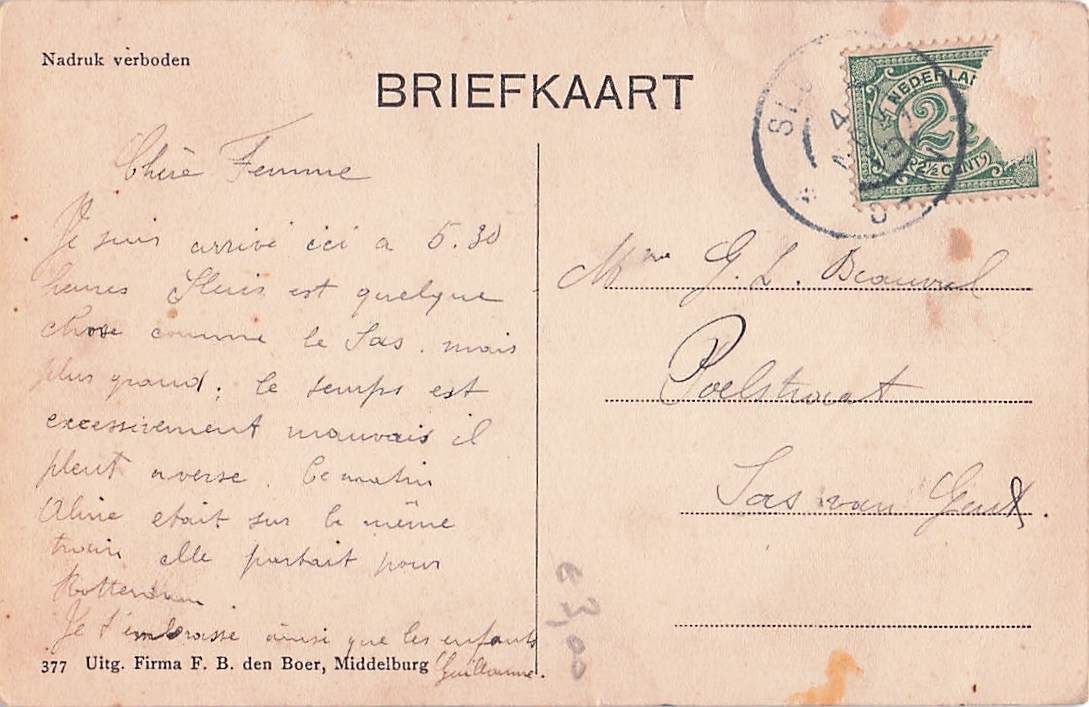 Nadruk verboden
BRIEFKAART
NEDERLAN
2½
2½ CENT
Chère Femme
Je suis arrivé ici a 5.30
heures Sluis est quelque
chose comme le Sas. mais
plus grand; le temps est
excessivement mauvais il
pleut averse. Ce matin
Aline etait sur le même
train elle partait pour
Rotterdam.
Je t'embrasse ainsi que les enfants
Guillaume.
Mme G. L. Beauvral
Poelstraat
Sas van Gent.
€3,00
377 Uitg. Firma F. B. den Boer, Middelburg